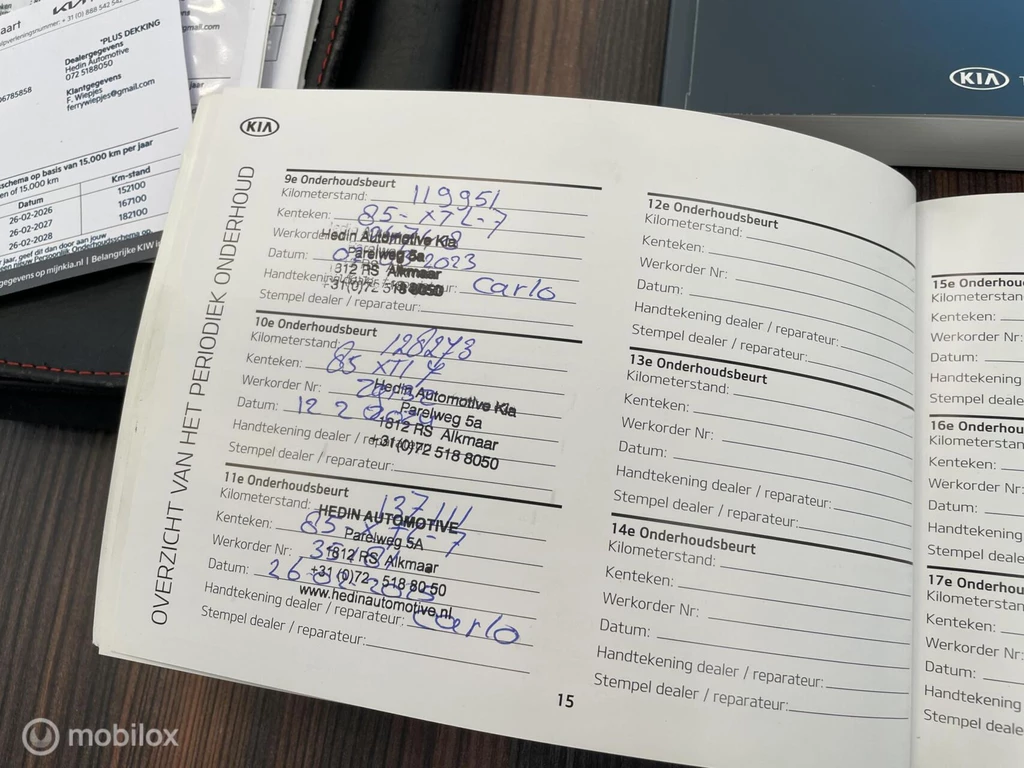 aart
alpverleningsnummer: + 31 (0) 888 542 542
"PLUS DEKKING
Dealergegevens
Hedin Automotive
072 5188050
06785858
Klantgegevens
F. Wiepjes
ferrywiepjes@gmail.com
schema op basis van 15.000 km per jaar
en of 15.000 km)
Datum Km-stand
26-02-2026 152100
26-02-2027 167100
26-02-2028 182100
r jaar, geef dit dan door aan jouw
gegevens op mijnkia.nl | Belangrijke KIW in
gmail.com
jaar
KIA
KIA
OVERZICHT VAN HET PERIODIEK ONDERHOUD
9e Onderhoudsbeurt
Kilometerstand: 119951
Kenteken: 85-XTL-7
Werkorder
Hedin Automotive Kia
Parelweg 5a
Datum: 2023
1812 RS Alkmaar
+31(0)72 518 8050
Handtekening Carlo
Stempel dealer / reparateur:
10e Onderhoudsbeurt
Kilometerstand: 128273
Kenteken: 85 XTL 7
Werkorder Nr:
Hedin Automotive Kia
Parelweg 5a
Datum: 12 2
1812 RS Alkmaar
+31(0)72 518 8050
Handtekening dealer / reparateur:
Stempel dealer / reparateur:
11e Onderhoudsbeurt
Kilometerstand: 137111
HEDIN AUTOMOTIVE
Kenteken: 85 XTL-7
Parelweg 5A
Werkorder Nr:
1812 RS Alkmaar
Datum: 26-02-2025
+31 (0)72 - 518 80 50
www.hedinautomotive.nl
Handtekening dealer / reparateur: Carlo
Stempel dealer / reparateur:
12e Onderhoudsbeurt
Kilometerstand:
Kenteken:
Werkorder Nr:
Datum:
Handtekening dealer / reparateur:
Stempel dealer / reparateur:
13e Onderhoudsbeurt
Kilometerstand:
Kenteken:
Werkorder Nr:
Datum:
Handtekening dealer / reparateur:
Stempel dealer / reparateur:
14e Onderhoudsbeurt
Kilometerstand:
Kenteken:
Werkorder Nr:
Datum:
Handtekening dealer / reparateur:
Stempel dealer / reparateur:
15
15e Onderhou
Kilometerstan
Kenteken:
Werkorder Nr:
Datum:
Handtekening
Stempel deale
16e Onderhou
Kilometerstan
Kenteken:
Werkorder Nr:
Datum:
Handtekening
Stempel deale
17e Onderhou
Kilometerstan
Kenteken:
Werkorder Nr:
Datum:
Handtekening
Stempel deale
mobilox